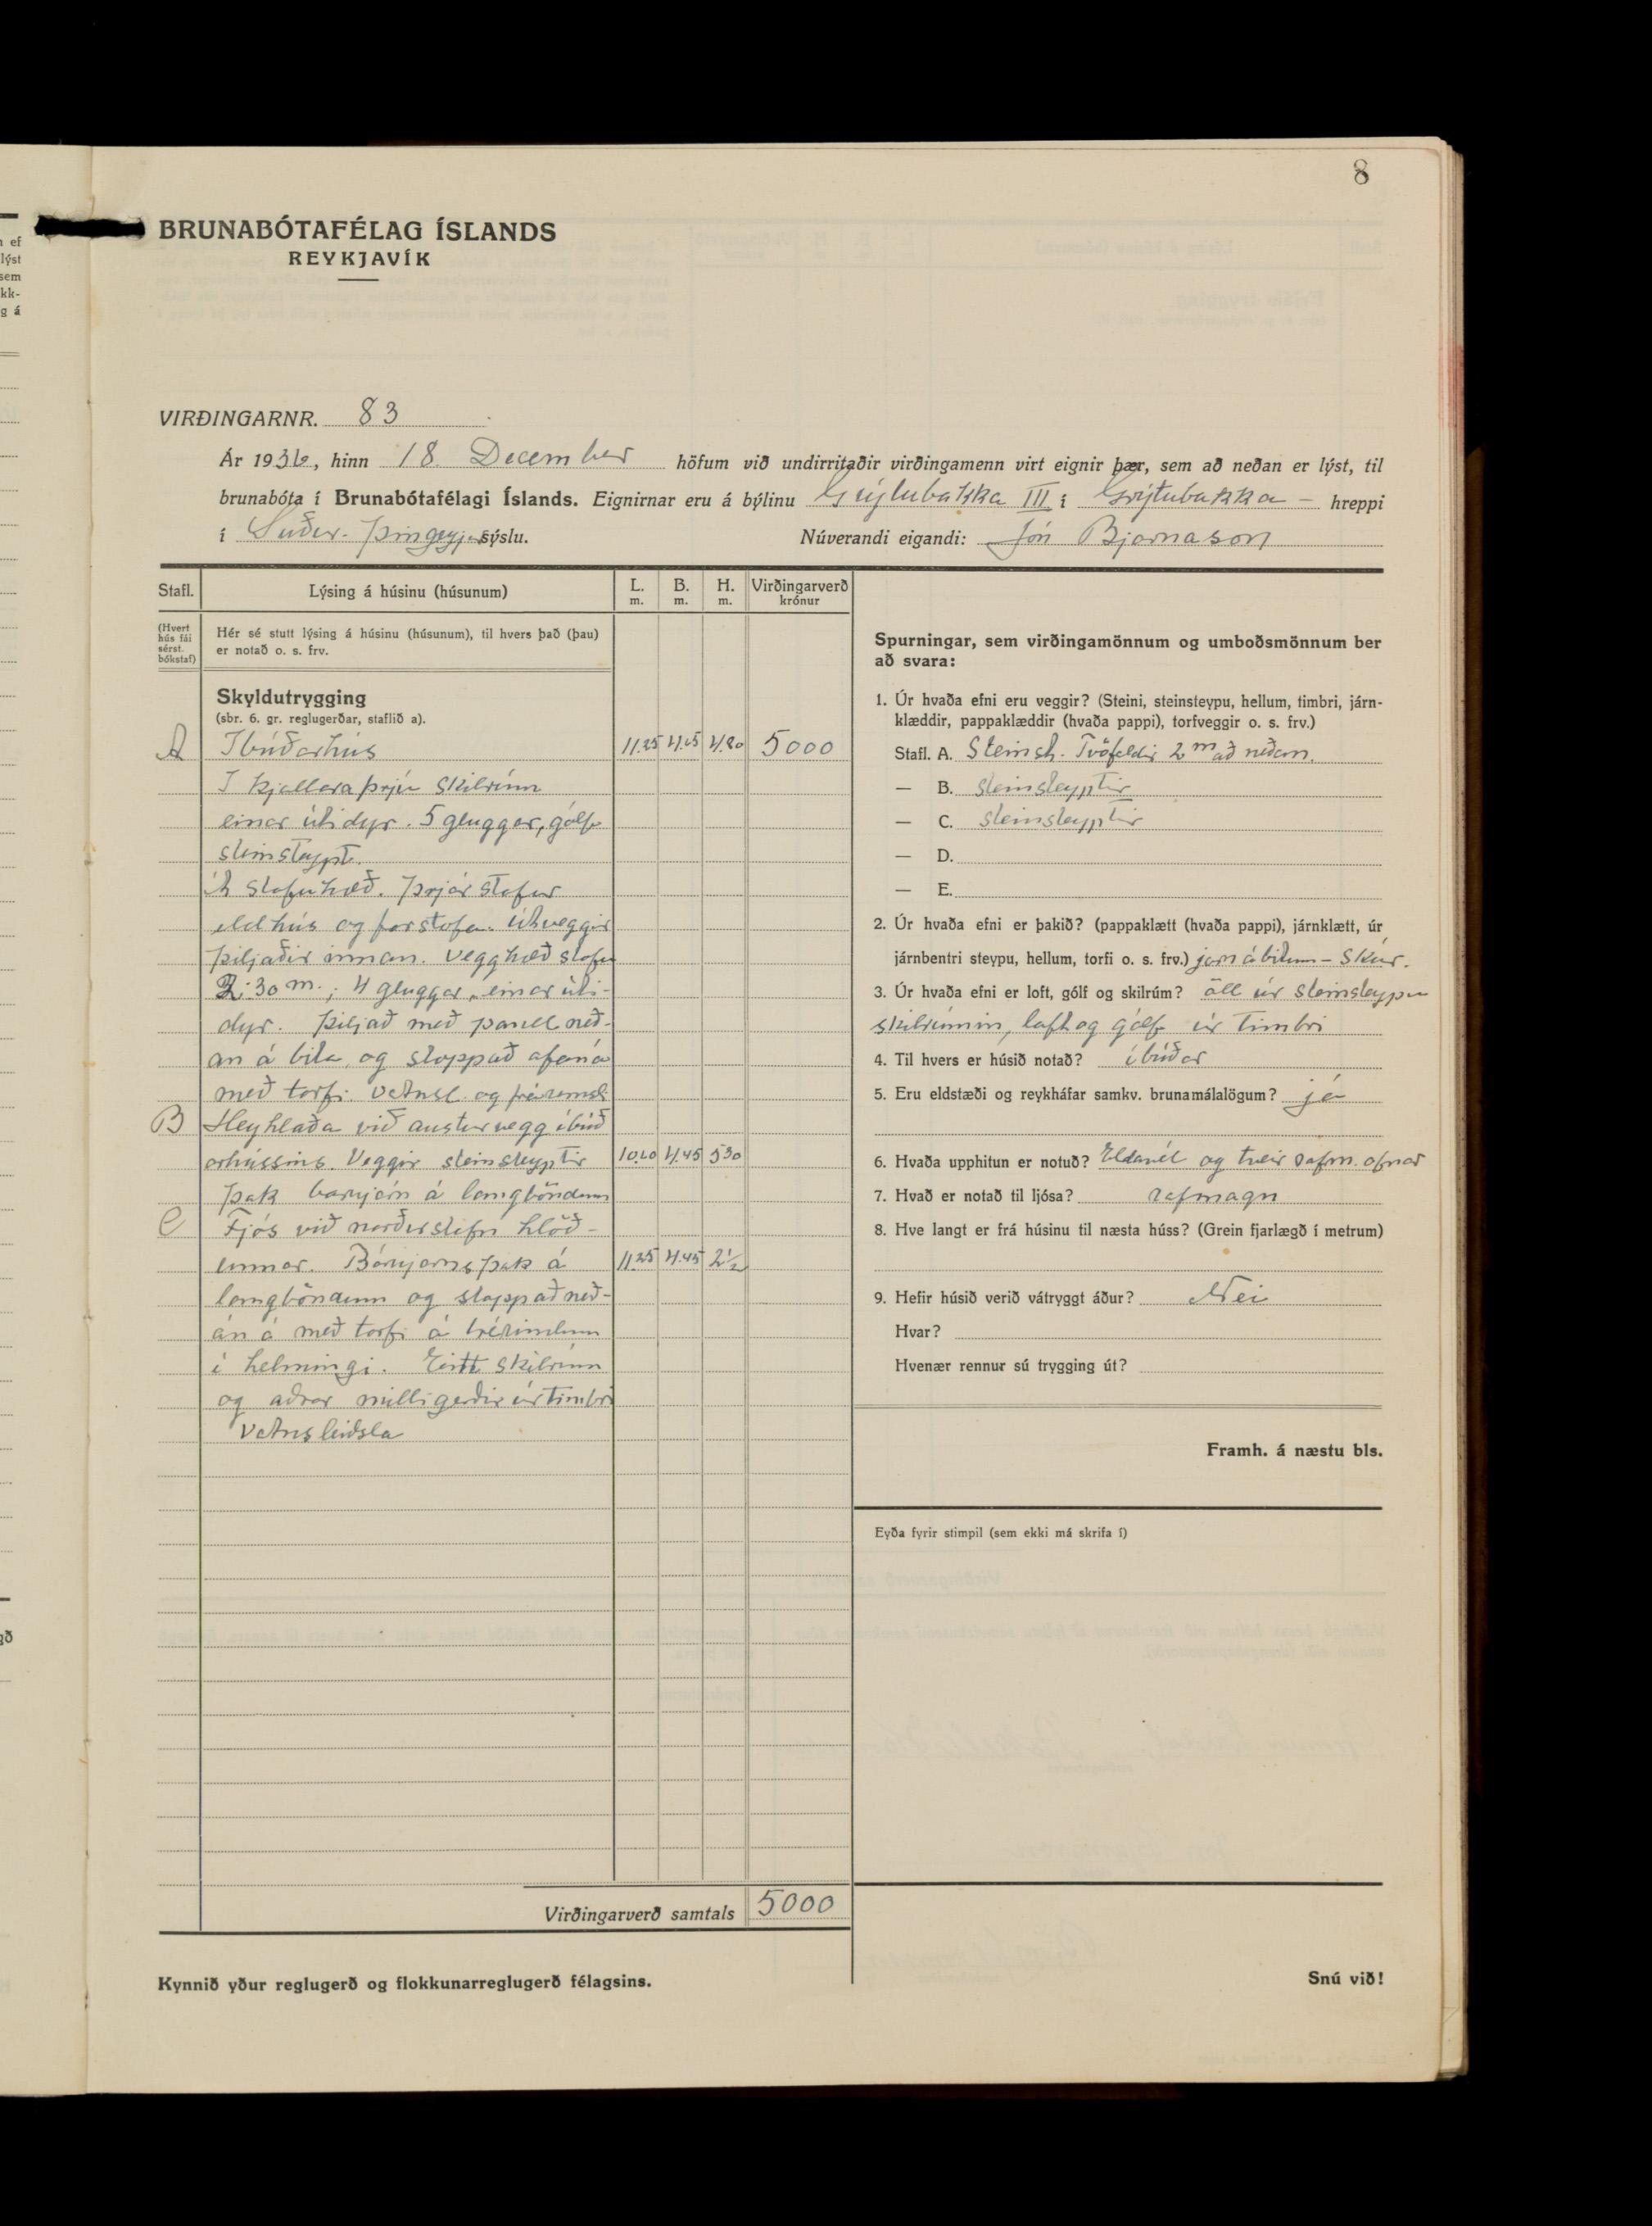 8
BRUNABÓTAFÉLAG ÍSLANDS
REYKJAVÍK
VIRÐINGARNR. 83
Ár 1936, hinn 18. December höfum við undirritaðir virðingamenn virt eignir þær, sem að neðan er lýst, til
brunabóta í Brunabótafélagi Íslands. Eignirnar eru á býlinu Grýtubakka III í Grýtubakka - hreppi
í Suður-Þingeyjar sýslu. Núverandi eigandi: Jón Bjarnason
Stafl. Lýsing á húsinu (húsunum) L. m. B. m. H. m. Virðingarverð krónur
(Hvert hús fái sérst. bókstaf)
Hér sé stutt lýsing á húsinu (húsunum), til hvers það (þau)
er notað o. s. frv.
Skyldutrygging
(sbr. 6. gr. reglugerðar, staflið a).
A Íbúðarhús 11.25 4.05 4.80 5000
Í kjallara þrjú skilrúm
einar útidyr. 5 gluggar, gólf
steinsteypt.
Á stofuhæð. Þrjár stofur
eldhús og forstofa. Útveggir
þiljaðir innan. Vegghæð stofu
2:30 m.; 4 gluggar, einar úti-
dyr. Þiljað með panel neð-
an á bita og stoppað ofaná
með torfi. Vatnsl. og frárennsli
B Heyhlaða við austurvegg íbúð
arhússins. Veggir steinsteyptir 10.20 4.45 5.30
Þak bárujárn á langböndum
C Fjós við norðurstafn hlöð-
unnar. Bárujárnsþak á 11.25 4.45 2½
langböndum og stoppað neð-
an á með torfi á trérimlum
í helmingi. Eitt skilrúm
og aðrar milligerðir úr timbri
Vatnsleiðsla
Virðingarverð samtals 5000
Kynnið yður reglugerð og flokkunarreglugerð félagsins.
Spurningar, sem virðingamönnum og umboðsmönnum ber
að svara:
1. Úr hvaða efni eru veggir? (Steini, steinsteypu, hellum, timbri, járn-
klæddir, pappaklæddir (hvaða pappi), torfveggir o. s. frv.)
Stafl. A. Steinst. Tvöfaldir 2 m að neðan.
— B. steinsteyptir
— C. steinsteyptir
— D.
— E.
2. Úr hvaða efni er þakið? (pappaklætt (hvaða pappi), járnklætt, úr
járnbentri steypu, hellum, torfi o. s. frv.) járn á bitum - Skúr.
3. Úr hvaða efni er loft, gólf og skilrúm? öll úr steinsteypu
skilrúmin, loft og gólf úr timbri
4. Til hvers er húsið notað? íbúðar
5. Eru eldstæði og reykháfar samkv. brunamálalögum? já
6. Hvaða upphitun er notuð? Eldavél og tveir rafm. ofnar
7. Hvað er notað til ljósa? rafmagn
8. Hve langt er frá húsinu til næsta húss? (Grein fjarlægð í metrum)
9. Hefir húsið verið vátryggt áður? Nei
Hvar?
Hvenær rennur sú trygging út?
Framh. á næstu bls.
Eyða fyrir stimpil (sem ekki má skrifa í)
Snú við!